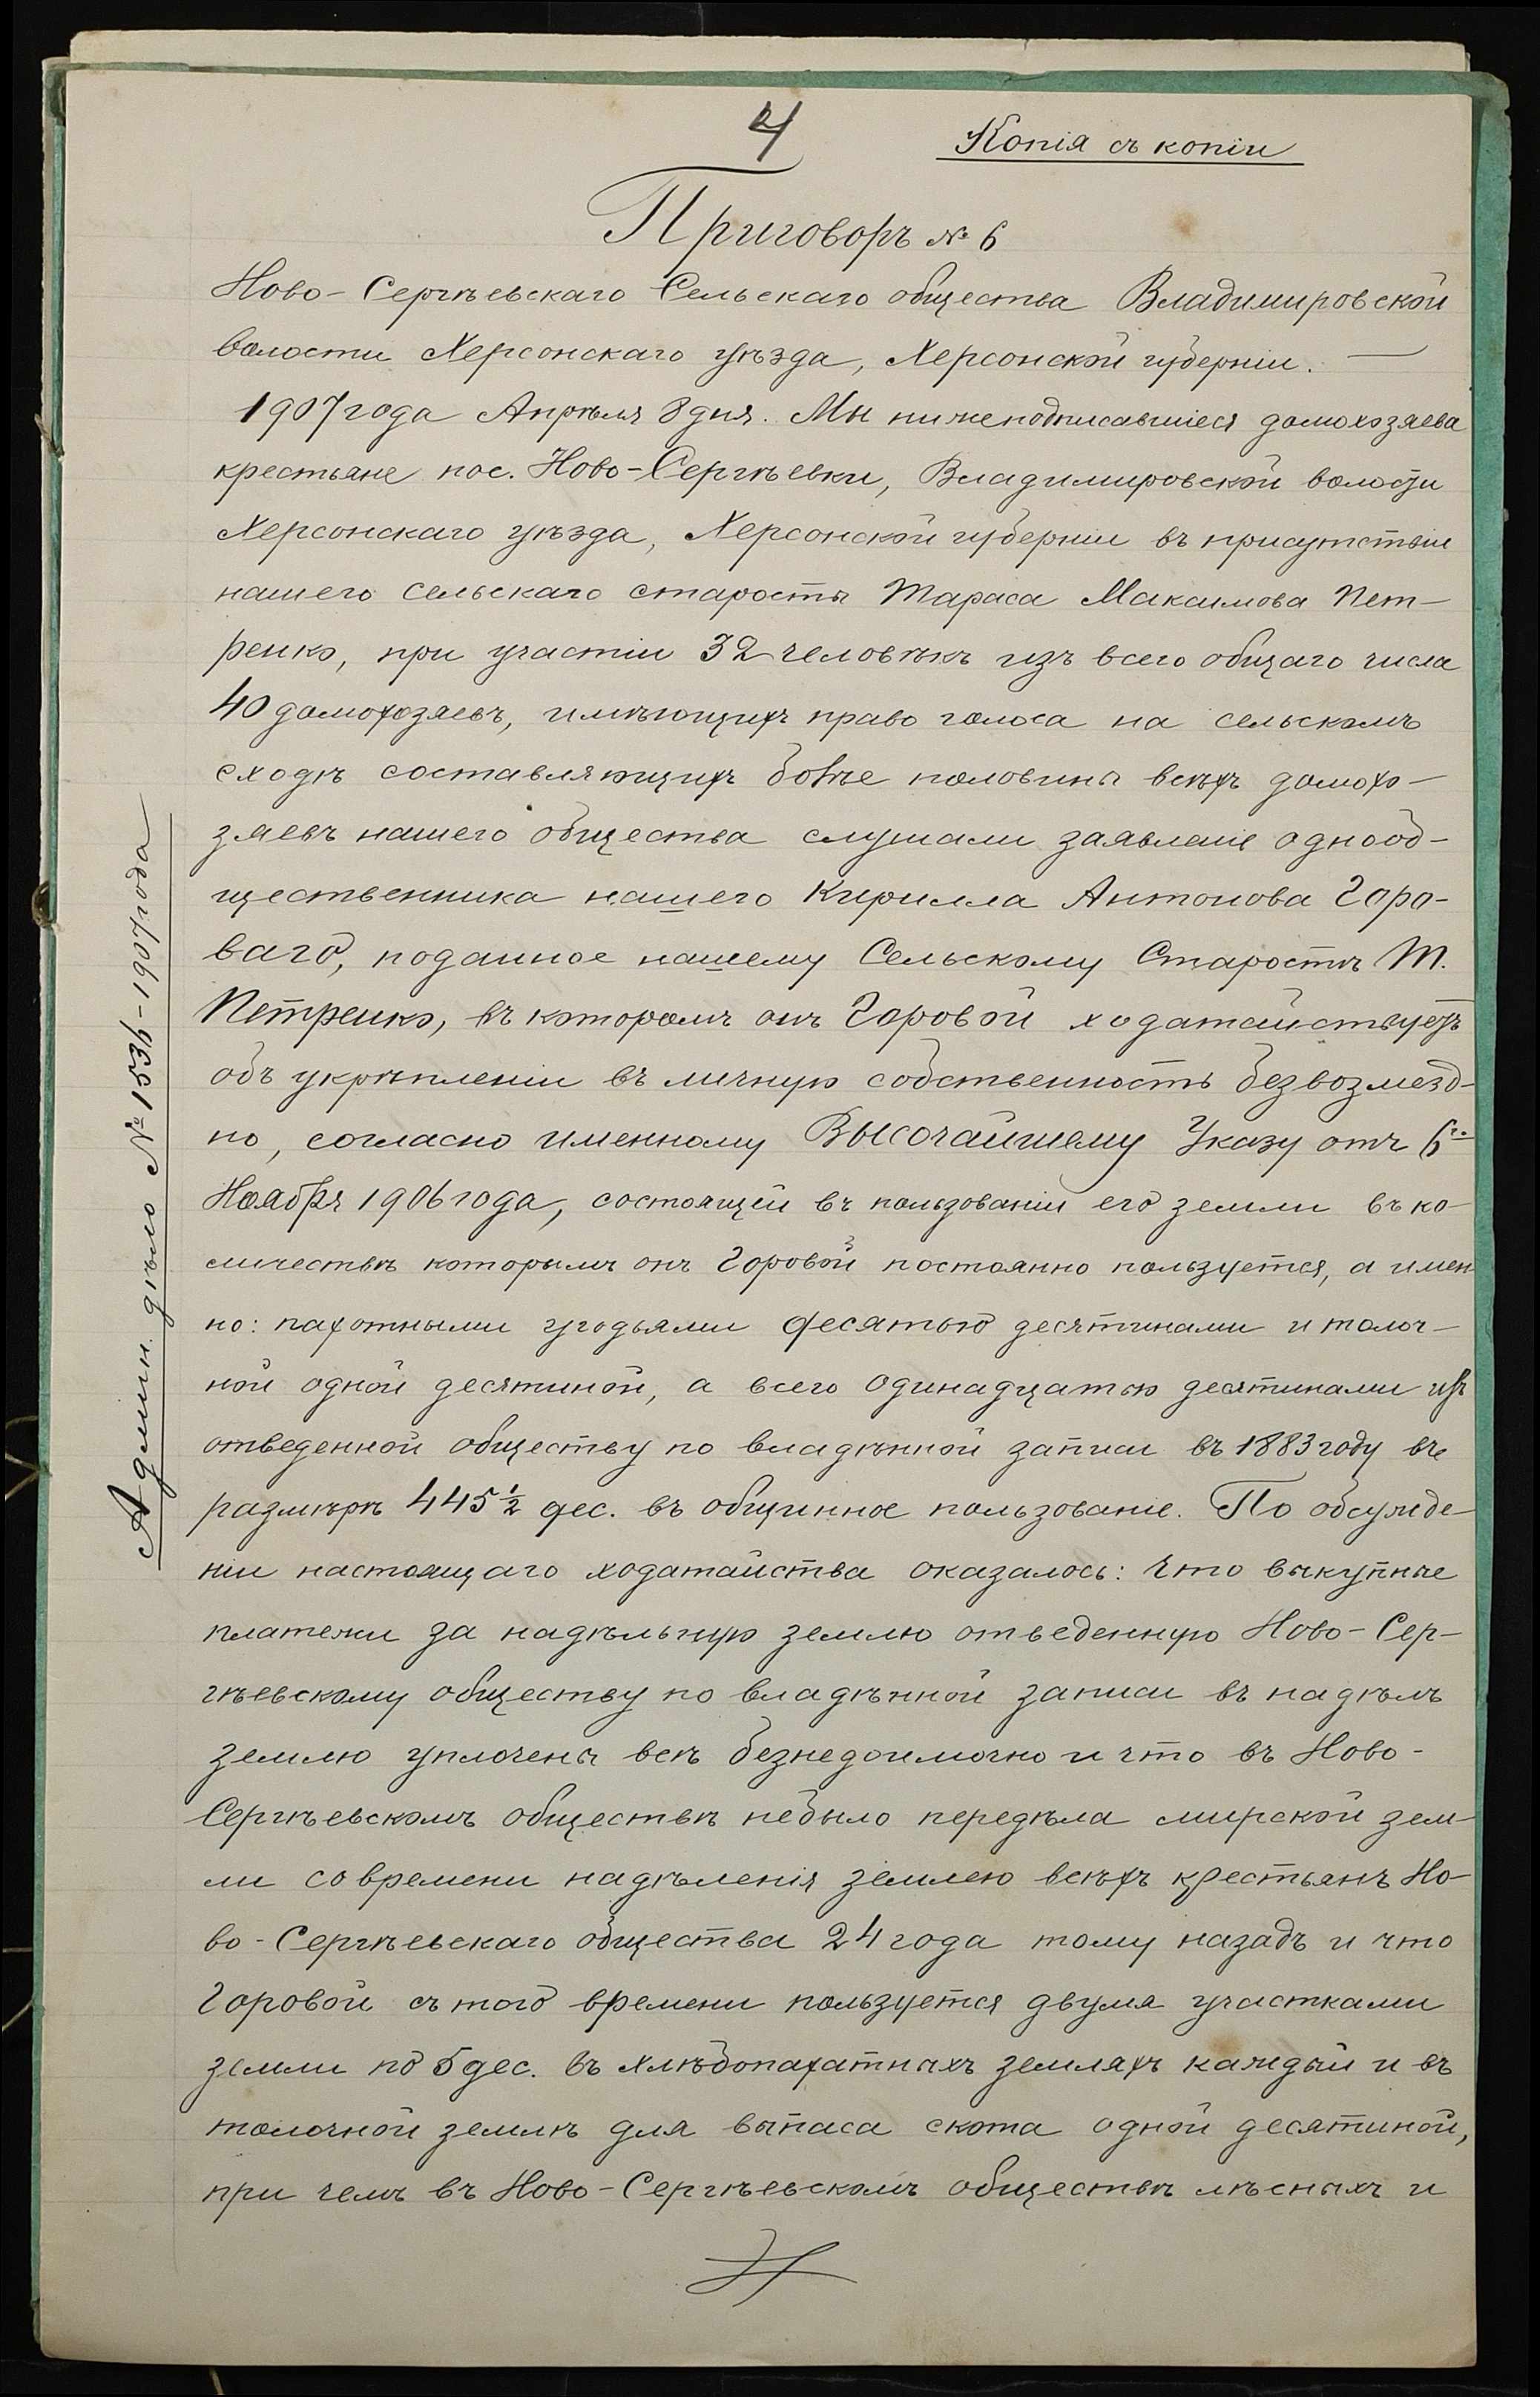 4
Копія съ копіи
Приговоръ № 6
Ново-Сергѣевскаго Сельскаго общества Владимировской
волости Херсонскаго уѣзда, Херсонской губерніи. —
1907 года Апрѣля 8 дня. Мы нижеподписавшіеся домохозяева
крестьяне пос. Ново-Сергѣевки, Владимировской волости
Херсонскаго уѣзда, Херсонской губерніи въ присутствіи
нашего сельскаго старосты Тараса Максимова Пет-
ренко, при участіи 32 человѣкъ изъ всего общаго числа
40 домохозяевъ, имѣющихъ право голоса на сельскомъ
сходѣ составляющихъ болѣе половины всѣхъ домохо-
зяевъ нашего общества слушали заявленіе однооб-
щественника нашего Кирилла Антонова Горо-
ваго, поданное нашему Сельскому Старостѣ Т.
Петренко, въ которомъ онъ Горовой ходатайствуетъ
объ укрѣпленіи въ личную собственность безвозмезд-
но, согласно именному Высочайшему Указу отъ 6го
Ноября 1906 года, состоящей въ пользованіи его земли въ ко-
личествѣ которымъ онъ Горовой постоянно пользуется, а имен
но: пахотными угодьями десятью десятинами и толоч-
ной одной десятиной, а всего одинадцатью десятинами изъ
отведенной обществу по владѣнной записи въ 1883 году въ
размѣрѣ 445 ½ дес. въ общинное пользованіе. По обсужде-
ніи настоящаго ходатайства оказалось: что выкупные
платежи за надѣльную землю отведенную Ново-Сер-
гѣевскому обществу по владѣнной записи въ надѣлъ
землю уплочены всѣ безнедоимочно и что въ Ново-
Сергѣевскомъ обществѣ небыло передѣла мирской зем-
ли со времени надѣленія землею всѣхъ крестьянъ Но-
во-Сергѣевскаго общества 24 года тому назадъ и что
Горовой съ того времени пользуется двумя участками
земли по 5 дес. въ хлѣбопахатныхъ земляхъ каждый и въ
толочной землѣ для выпаса скота одной десятиной,
при чемъ въ Ново-Сергѣевскомъ обществѣ лѣсныхъ и
Админ. дѣло № 1536-1907 года